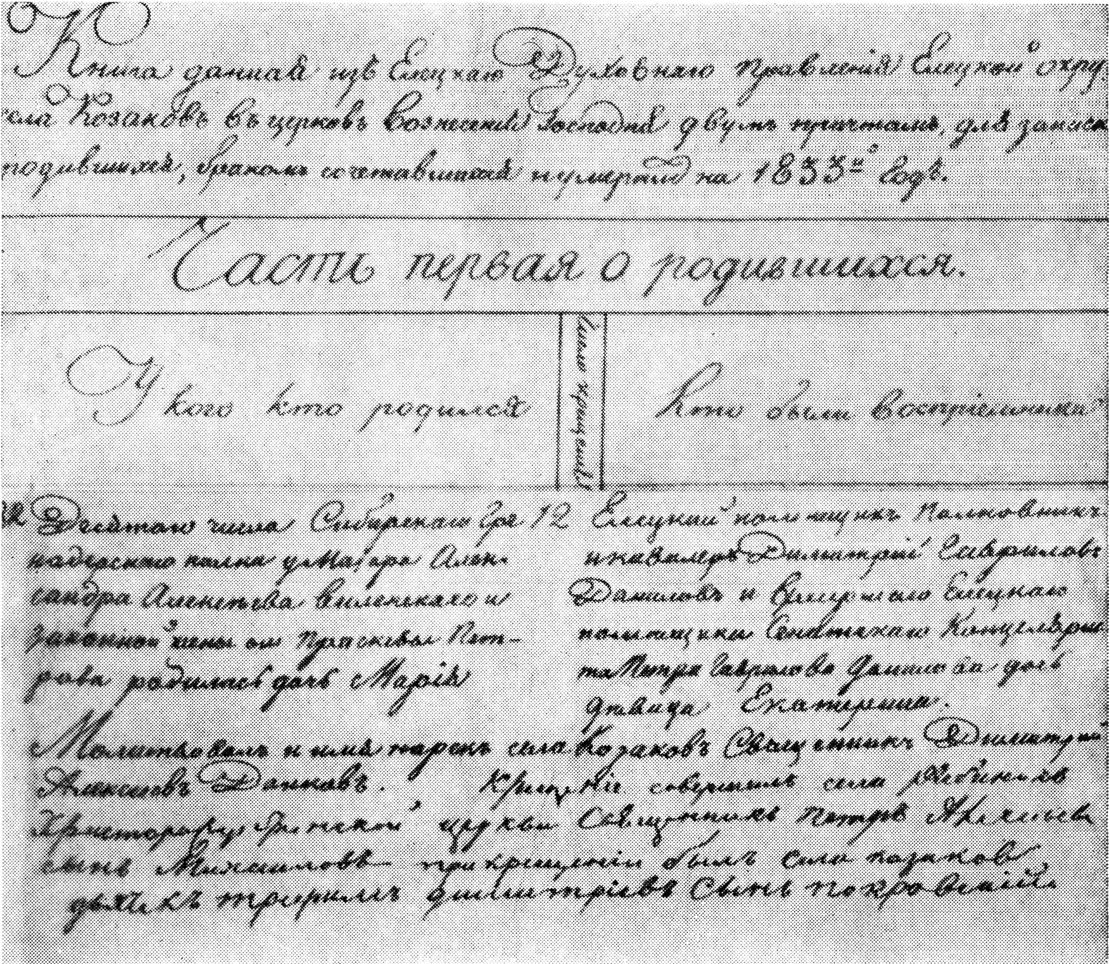 Книга данная изъ Елецкаго Духовнаго Правленія Елецкой округ
села Козаковъ въ церковь Вознесенія Господня двумъ причтамъ, для записи
родившихся, бракомъ сочетавшихся и умершихъ на 1833й годъ.
Часть первая о родившихся.
У кого кто родился
Число крещенія
Кто были воспріемники
Десятаго числа Сибирскаго Гре
надерскаго полка у Маіора Алек-
сандра Алексѣева Виленскаго и
законной жены его Прасковьи Пет-
рова родилась дочь Марія
12
Елецкій помѣщикъ Полковникъ
и кавалеръ Димитрій Гавриловъ
Даниловъ и умершаго Елецкаго
помѣщика Сенатскаго Концеляри
ста Петра Гаврилова Данилова дочь
дѣвица Екатерина.
Молитвовалъ и имя нарекъ села Козаковъ Священникъ Димитрій
Алексѣевъ Данковъ. Крещеніе совершилъ села Рябинокъ
Христорождественской церкви Священникъ Петръ Алексѣевъ
сынъ Михаиловъ при крещеніи былъ села козаковъ
дьячекъ трифилъ димитріевъ сынъ покровскій.